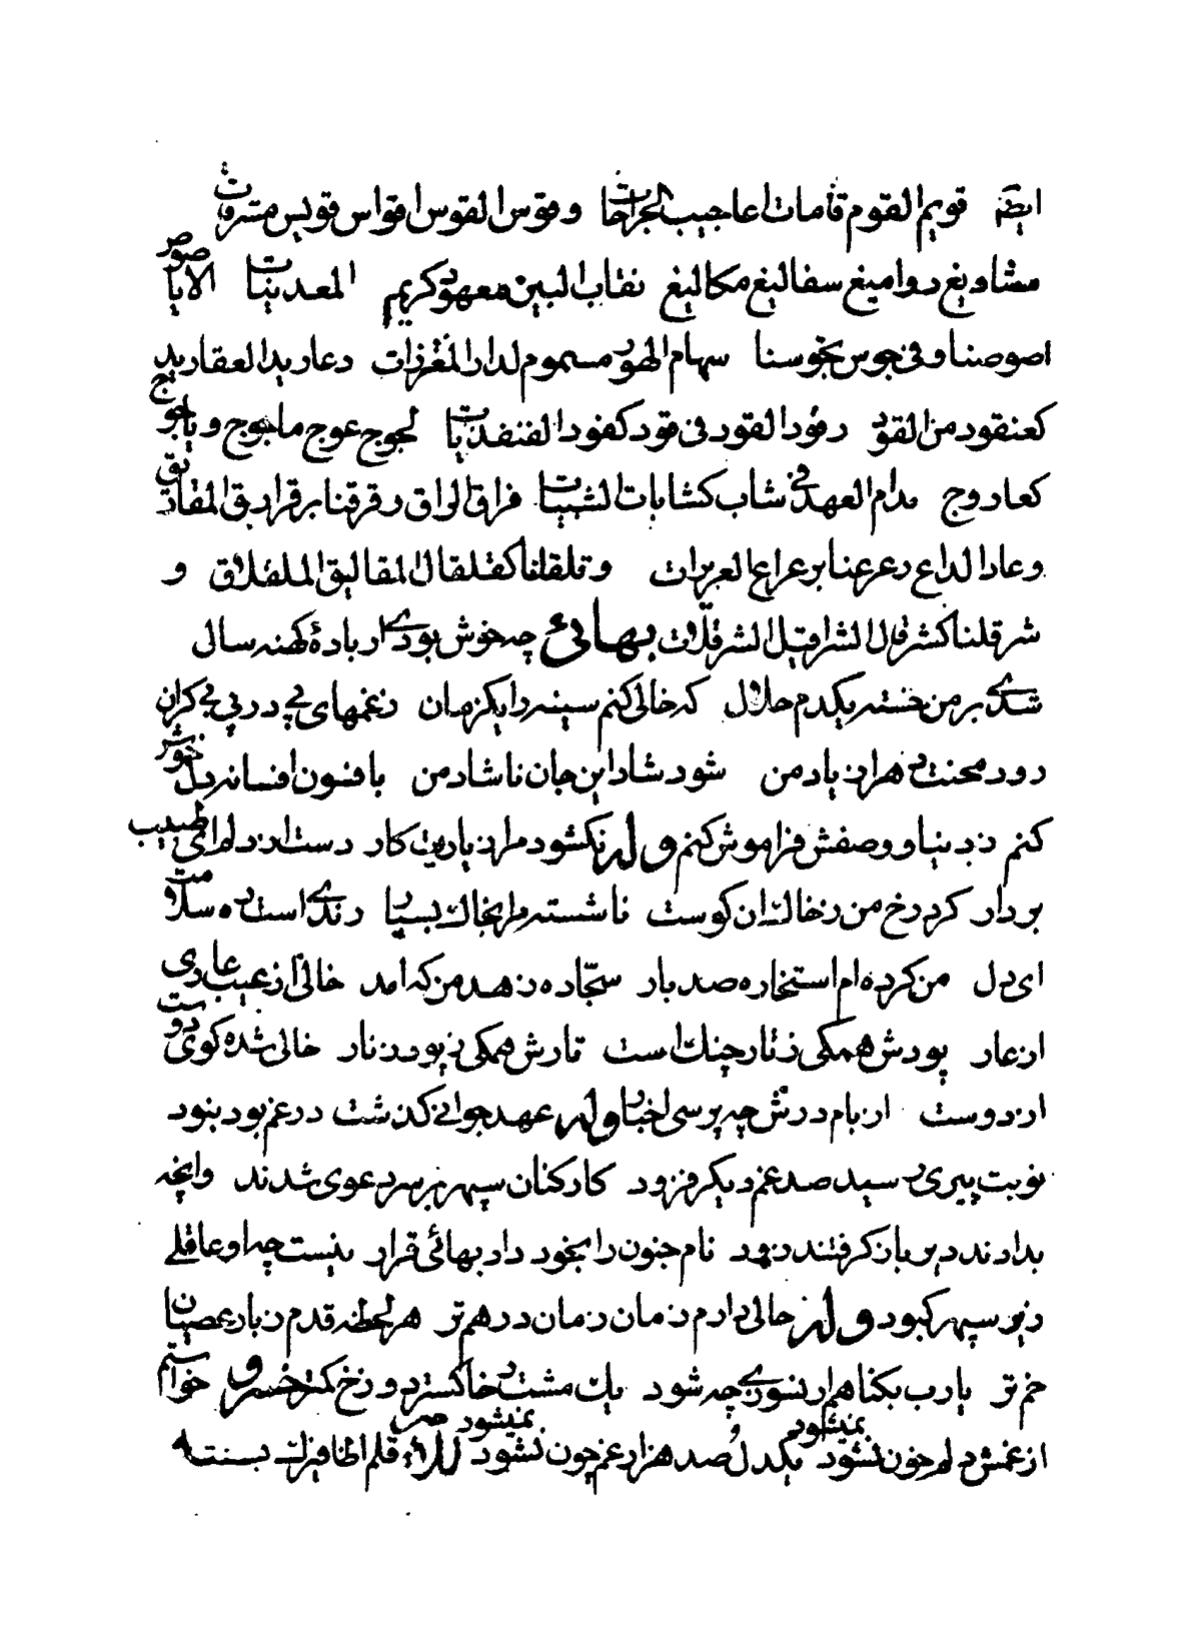 ايضا قويم القوم قامات اعاجيب الجراحات وقوس القوس اقواس قويس متسرقات
مشاويغ دواميغ سفاليغ مكاليغ نقاب البين معهود كريم المعدنيات الايا صوص
اصوصنا وفى جوس بجوسنا سهام الهود مسموم لدار المغرزات دعاريد العقاريد
كعنقود من القود رفود القود فى قود كفود الفنفديات لجوج عوج ماجوج وياجوج
كعادوج مدام العهد فى شاب كشابات الشيبات فراق الواق رقرقنا برقراريق المقاديق
وعاد الداع رعرعنا برعراع العريرات وتلقلنا كقلقال المقاليق الملقلاق و
شرقلنا كشرقال الشراقيل الشرقلات بهائى چه خوش بودى ار بادهٔ كهنه سال
شدى بر من خسته يكدم حلال كه خالى كنم سينه را يكزمان زغمهاى پى در پى بى كران
رود محنت دهر از ياد من شود شاد اين جان ناشاد من بافسون افسانه دل خوش
كنم ز دنيا و وصفش فراموش كنم وله نكشود مرا زياريت كار دست از دلم اى طبيب
بردار كرد رخ من ز خاك آن كوست ناشسته مرا بخاك بسپار رندى است ره سلامت
اى دل من كرده ام استخاره صد بار سجّاده زهد من كه آمد خالى از عيب عارى
از عار پودش همكى ز تار چنك است تارش همكى ز پود زنار خالى شده كوى دوست
از دوست از بام درش چه پرسى اخبار وله عهد جوانى كذشت در غم بود نبود
نوبت پيرى رسيد صد غم ديكر فزود كاركنان سپهر بر سر دعوى شدند وانچه
بدادند دير باز كرفتند زود نام جنون را بخود داد بهائى قرار نيست چه او عاقلى
زير سپهر كبود وله حالى دارم زمان زمان درهم تر هر لحظه قدم ز بار عصيان
خم تر يارب بكناهم ار نسوزى چه شود يك مشت خاكستر دوزخ كمتر خسرو خواستم
از غمش دلم خون نشود نميشود يكدل و صد هزار غم چون نشود نميشود قلم اظافيرك بسنت